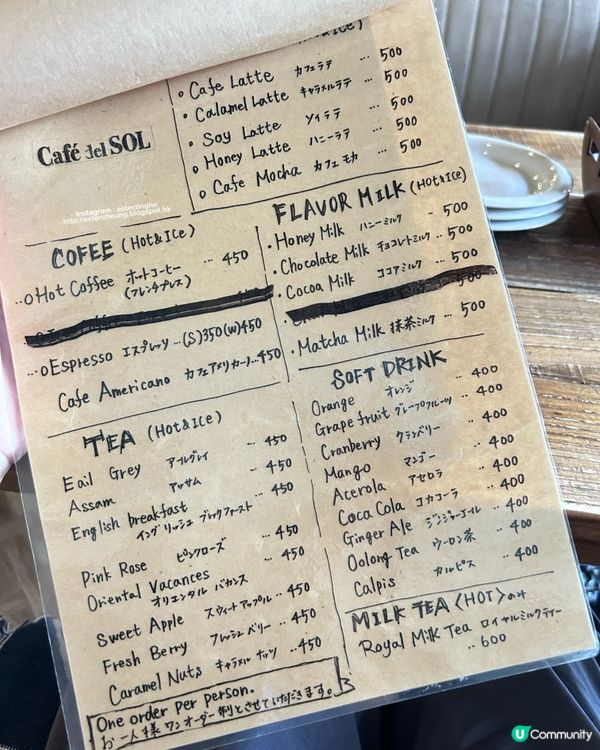 Café del SOL
Instagram : estertingho
http://estercheung.blogspot.hk
COFEE (Hot&Ice)
Hot Coffee ホットコーヒー ... 450
(フレンチプレス)
Espresso エスプレッソ ...(S)350(W)450
Cafe Americano カフェアメリカーノ...450
TEA (Hot&Ice)
Eail Grey アールグレイ ... 450
Assam アッサム ... 450
English breakfast ... 450
イングリッシュ ブレックファースト
Pink Rose ピンクローズ ... 450
Oriental Vacances ... 450
オリエンタル バカンス
Sweet Apple スウィートアップル ... 450
Fresh Berry フレッシュベリー ... 450
Caramel Nuts キャラメル ナッツ ...450
One order per person.
お一人様 ワンオーダー制とさせていただきます。
Cafe Latte カフェラテ ... 500
Calamel Latte キャラメルラテ ... 500
Soy Latte ソイラテ ... 500
Honey Latte ハニーラテ ... 500
Cafe Mocha カフェモカ ... 500
FLAVOR MILK (Hot&Ice)
Honey Milk ハニーミルク ... 500
Chocolate Milk チョコレートミルク ... 500
Cocoa Milk ココアミルク ... 500
500
Matcha Milk 抹茶ミルク ... 500
SOFT DRINK
Orange オレンジ ... 400
Grape fruit グレープフルーツ ... 400
Cranberry クランベリー ... 400
Mango マンゴー ... 400
Acerola アセロラ ... 400
Coca Cola コカコーラ ... 400
Ginger Ale ジンジャーエール ... 400
Oolong Tea ウーロン茶 ... 400
Calpis カルピス ... 400
MILK TEA <HOT>のみ
Royal Milk Tea ロイヤルミルクティー
... 600
U Community